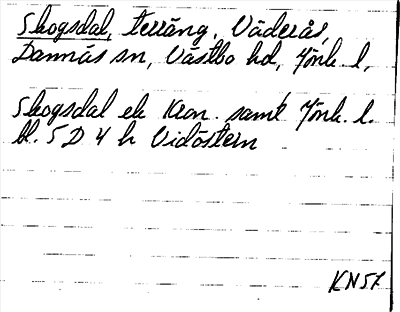 Skogsdal, terräng, Väderås,
Dannäs sn, Västbo hd, Jönk. l.
Skogsdal ek Kron. samt Jönk. l.
bl. 5 D 4 h Vidöstern
KN57